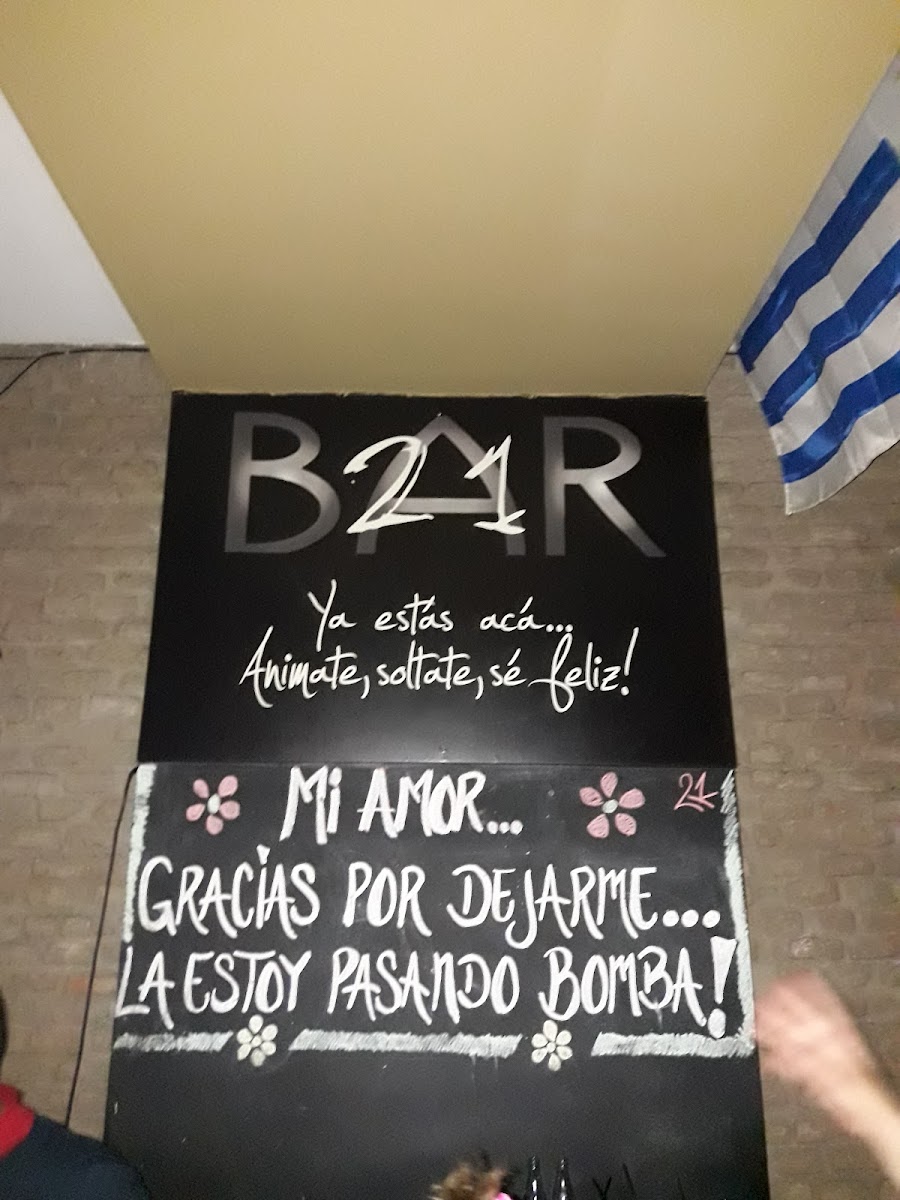 BAR
21
Ya estás acá...
Animate, soltate, sé feliz!
Mi AMOR...
21
GRACIAS POR DEJARME...
LA ESTOY PASANDO BOMBA!